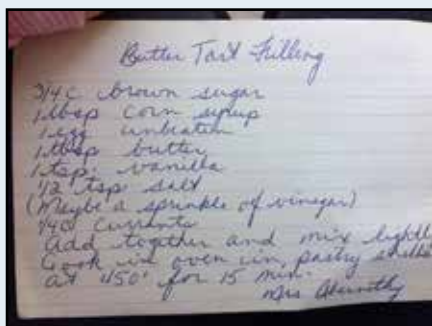 Butter Tart Filling
3/4c brown sugar
1 tbsp corn syrup
1 egg unbeaten
1 tbsp butter
1 tsp. vanilla
1/2 tsp salt
(Maybe a sprinkle of vinegar)
1/4c currants
Add together and mix lightly
Cook in oven in pastry shells
at 450° for 15 min.
Mrs Abernethy